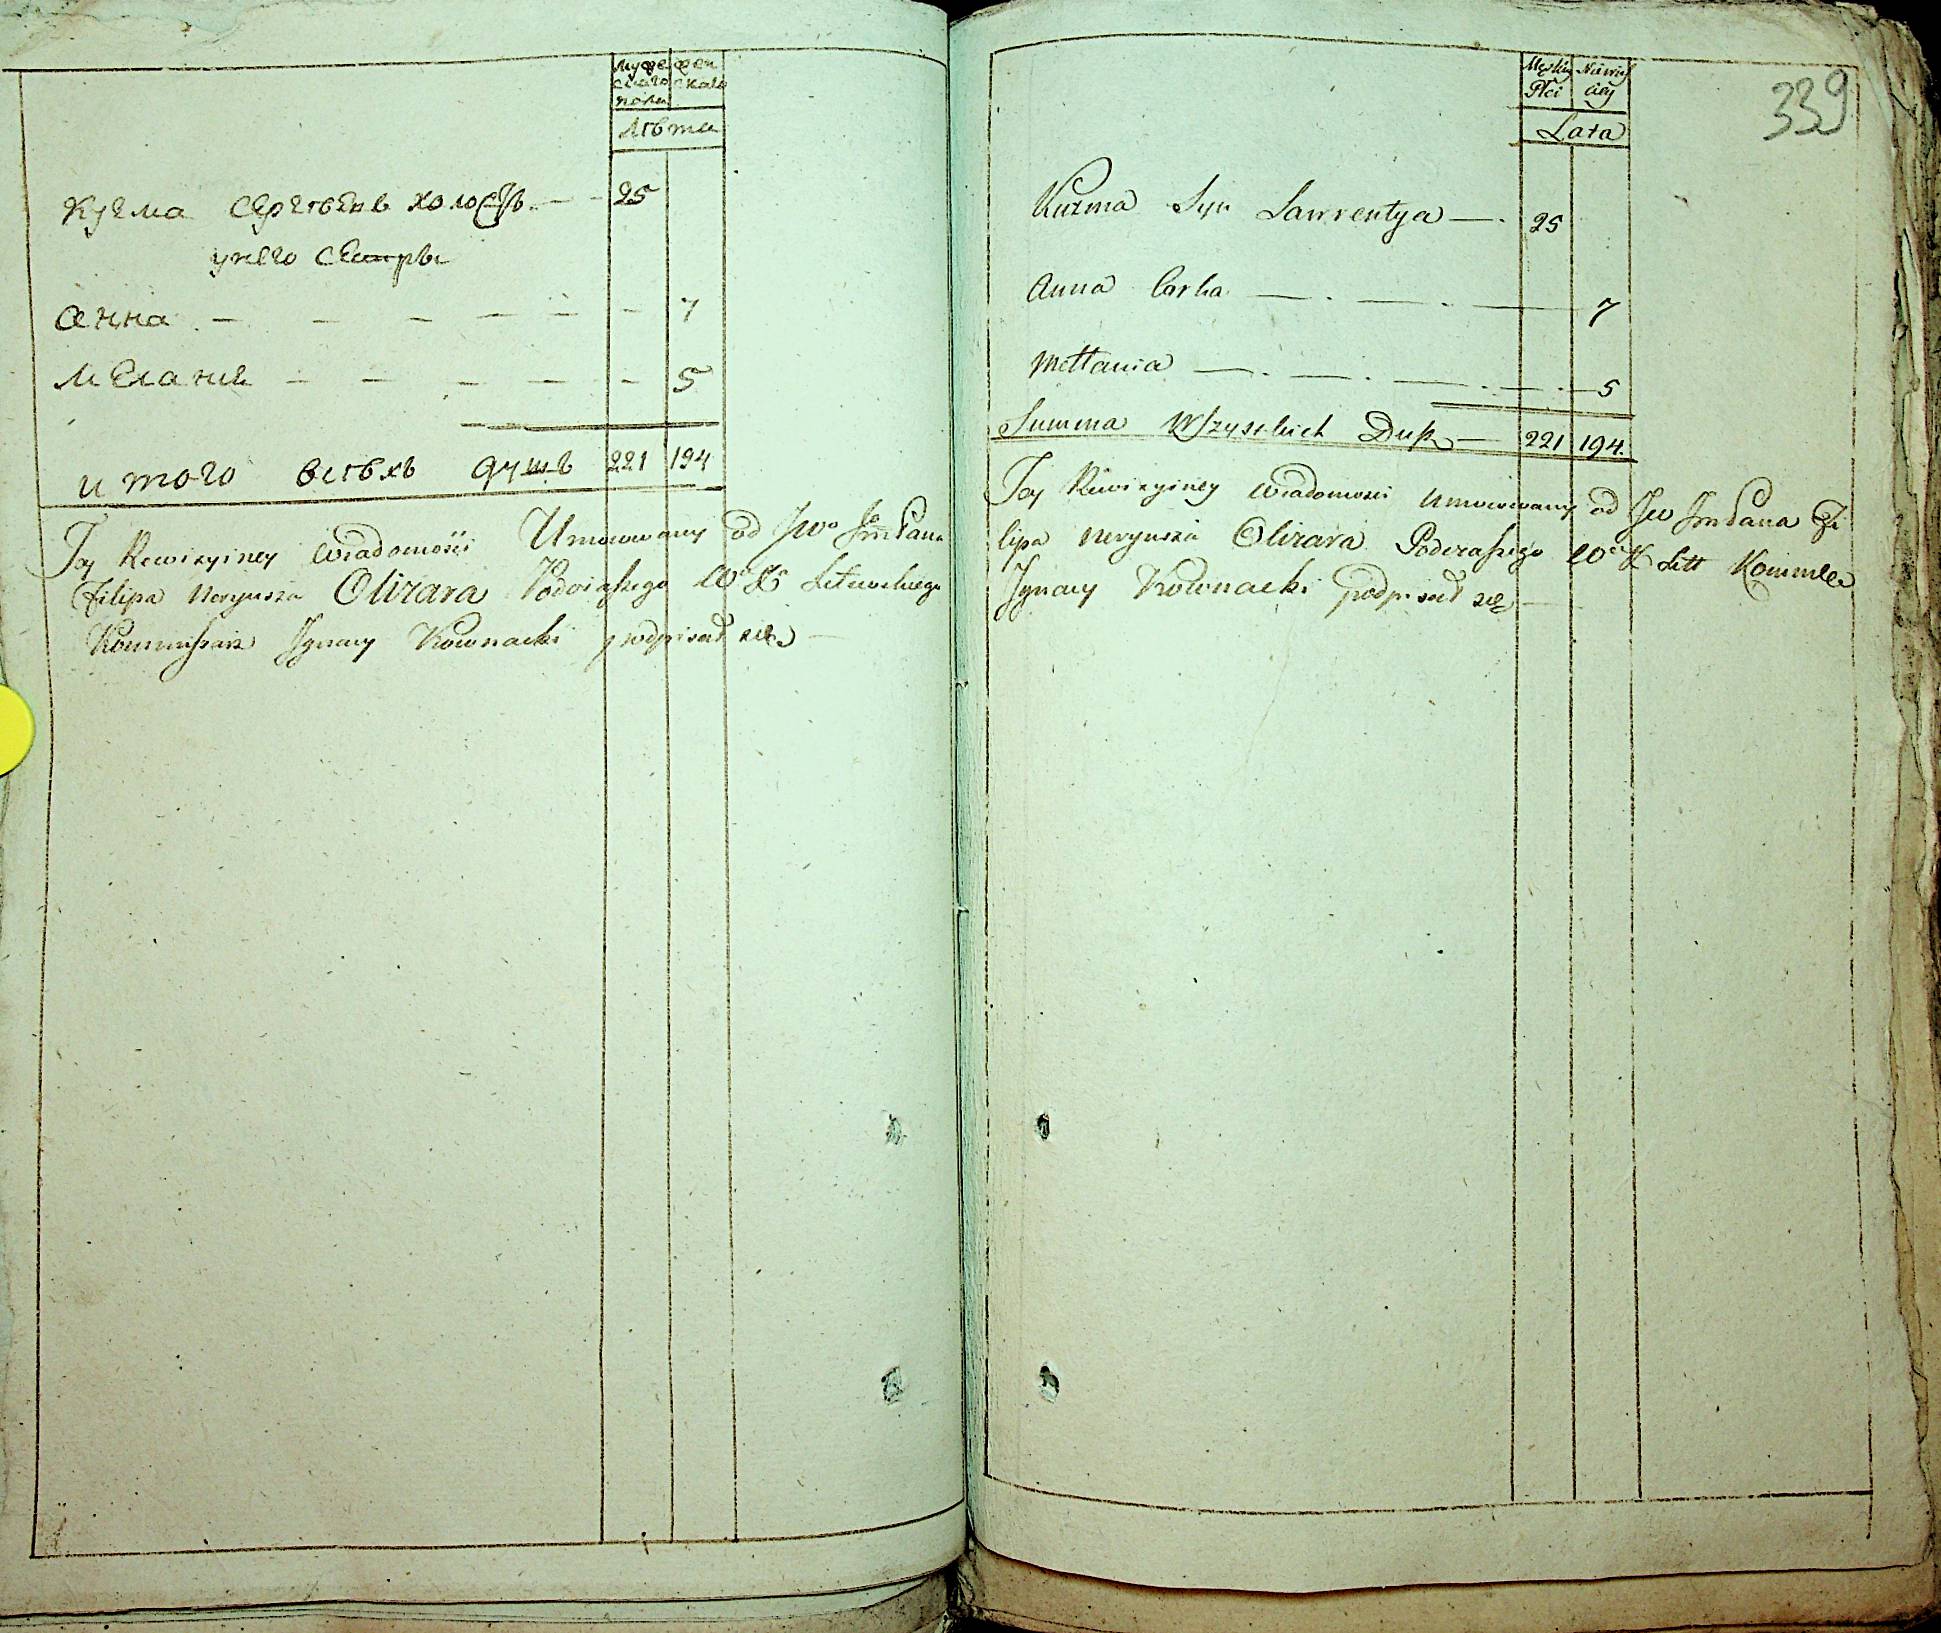 муже жен
скаго скаго
полу
лѣта
Кузма Сергѣевъ холостъ — 25
у него сестры
Анна — — — — — — 7
Меланія — — — — — 5
и того всѣхъ душъ 221 194
Tey Rewizyiney wiadomości Umocowany od Jwo Jm Pana
Filipa Neryusza Olizara Podczaszego W° X Litewskiego
Kommissarz Jgnacy Kownacki podpisał się —
339
Męskiey Niewieś
Płci ciey
Lata
Kuzma Syn Lawrentya — 25
Anna Corka — — — 7
Mellania — — — — 5
Summa Wszystkich Dusz — 221 194.
Tey Rewizyiney Wiadomosci Umocowany od Jw Jm Pana Fi
lipa Neryusza Olizara Podczaszego W° X Litt
Jgnacy Kownacki podpisał się —